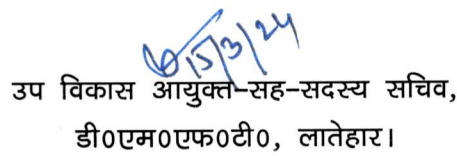 15/3/24
उप विकास आयुक्त-सह-सदस्य सचिव,
डी०एम०एफ०टी०, लातेहार।